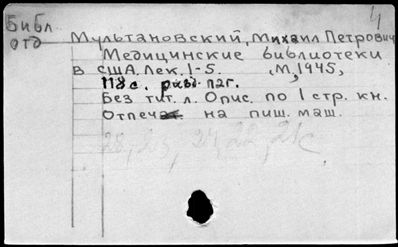 4
Библ
отд
Мультановский, Михаил Петрович
Медицинские библиотеки
в США. Лек. 1-5. М, 1945,
118с. разд. паг.
Без тит. л. Опис. по 1 стр. кн.
Отпеч. на пиш. маш.